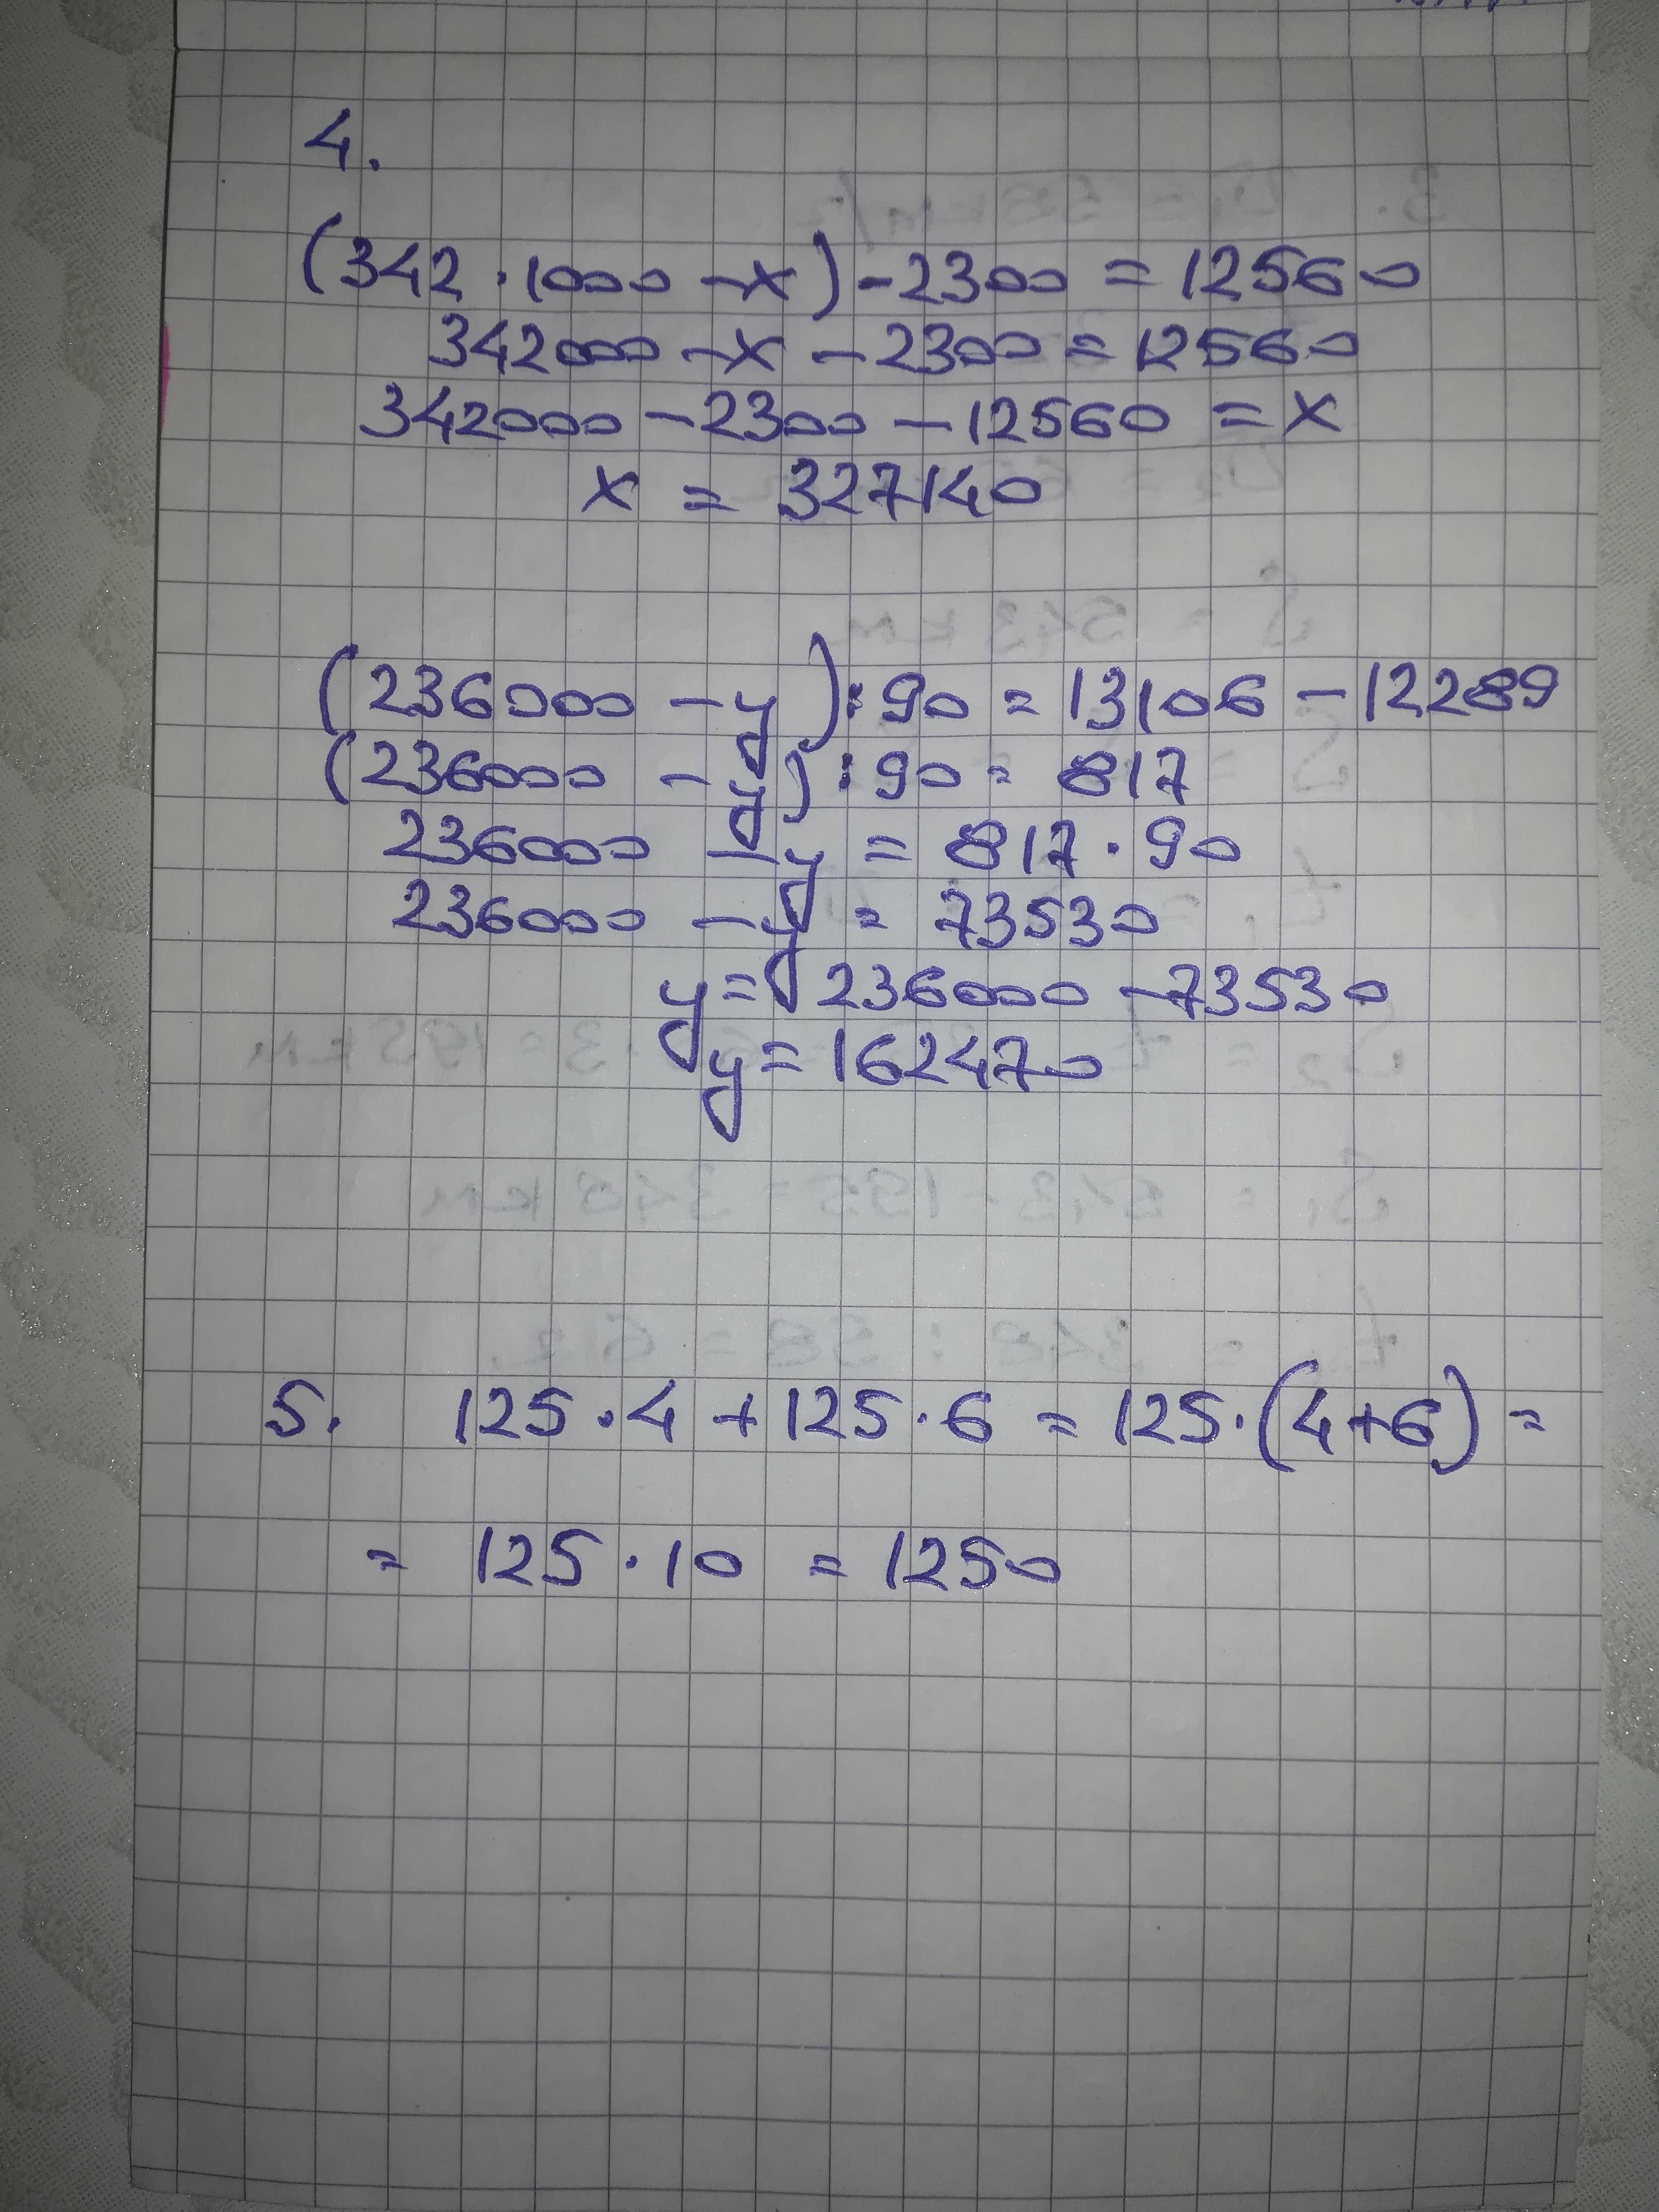 4.
(342 · 1000 - x) - 2300 = 12560
342000 - x - 2300 = 12560
342000 - 2300 - 12560 = x
x = 327140
(236000 - y) : 90 = 13106 - 12289
(236000 - y) : 90 = 817
236000 - y = 817 · 90
236000 - y = 73530
y = 236000 - 73530
y = 162470
5. 125 · 4 + 125 · 6 = 125 · (4+6) =
= 125 · 10 = 1250